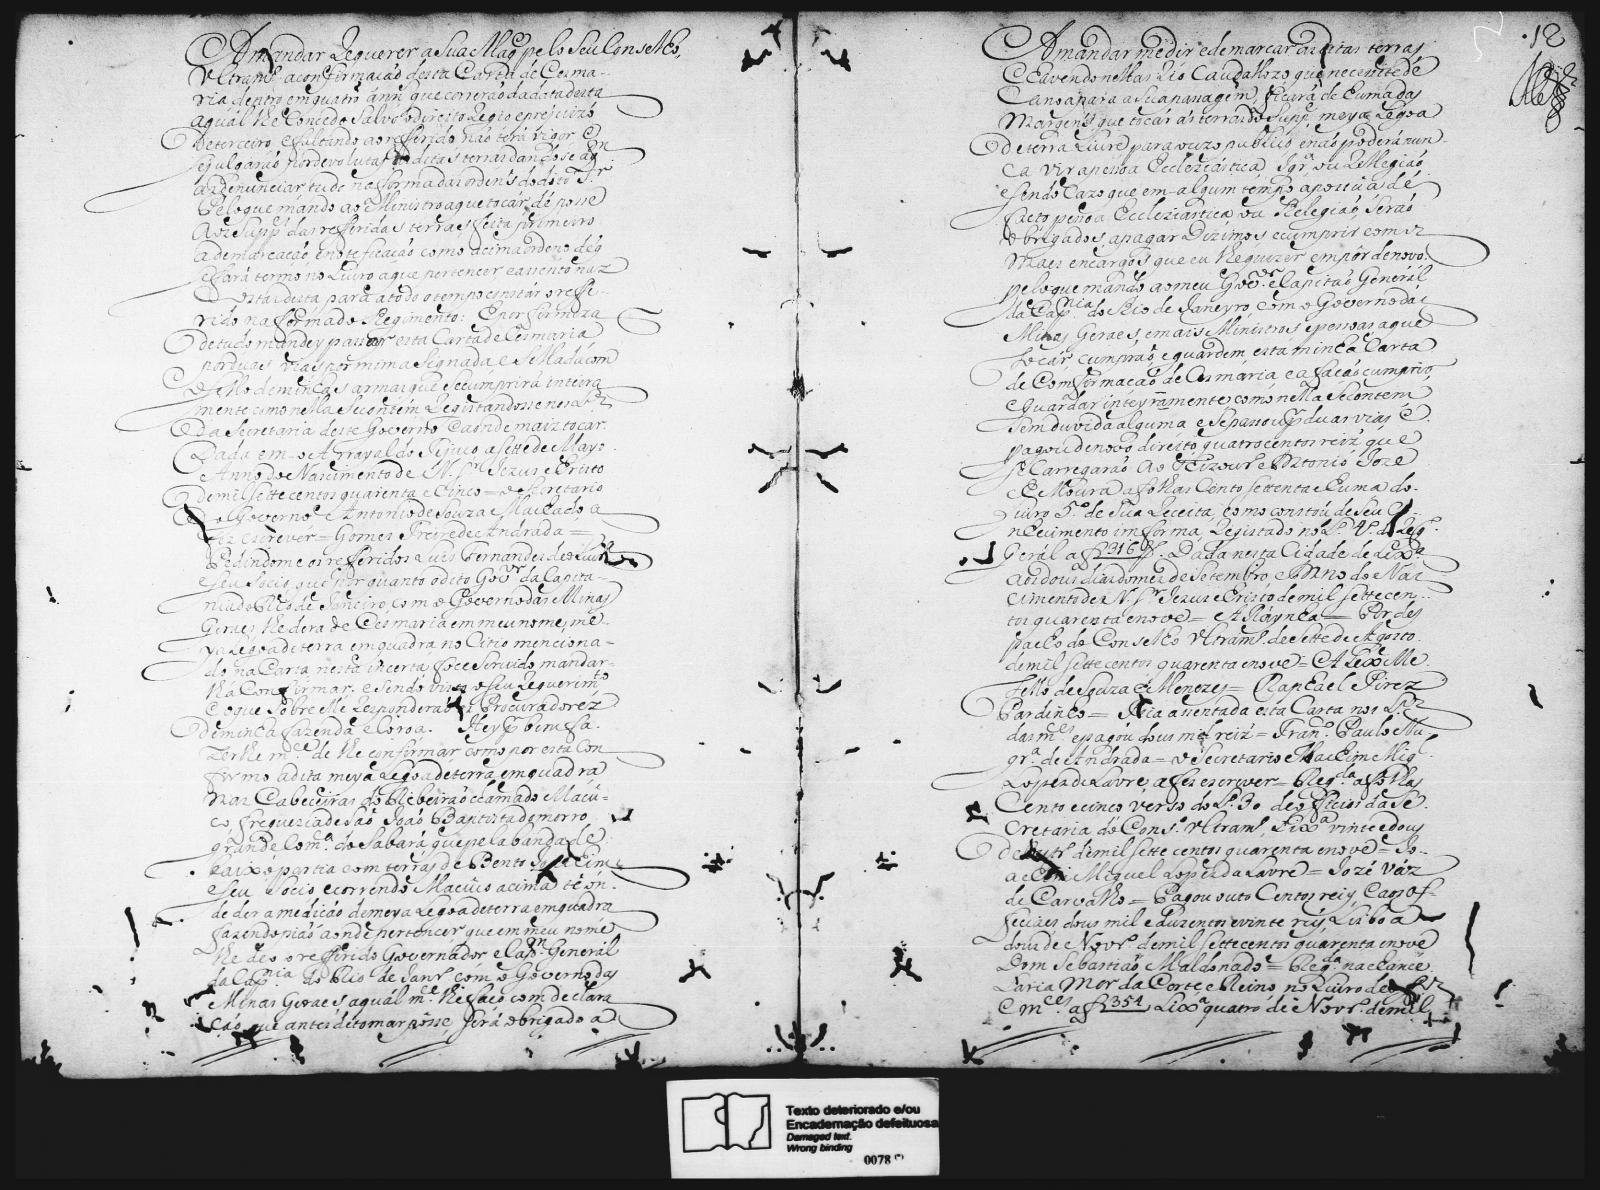 A mandar Requerer a Sua Mag.e pelo Seu Conselho,
Vltram.o a confirmacaõ desta Carta de Cesma-
ria dentro em quatro ann.s que correraõ da data desta
a qual lhe Concedo Salvo o direito Regio e prejuizo
de terceiro, e faltando ao refferido naõ terá vigor, E
se julgaraõ por devolutas as ditas terras dandose a q.m
as denunciar tudo na forma das ordens do dito S.r
Pelo que mando ao Ministro a que tocar dé posse
Aos Supp.es das refferidas terras feita primeiro
a demarcaçaõ e notificaçaõ como acima ordeno de q
se fará termo no Livro a que pertencer e assento nas
Costas desta para a todo o tempo constar o reffe-
rido na forma do Regimento: E por firmeza
de tudo mandey passar esta Carta de Cesmaria
por duas vias por mim asignada e Sellada com
o Sello de minhas armas que se cumprirá inteira
mente como nella Se contém Registandosse nos L.os
da Secretaria deste Governo e aonde mais tocar.
Dada em o Arrayal do Tijuco a sette de Mayo
Anno do Nascimento de N. Sr. Jezus Christo
de mil sette centos quarenta e Cinco = o Secretario
do Governo Antonio de Souza Machado, a
fez escrever = Gomes Freire de Andrada =
Pedindome os refferidos Luis Fernandes de
e seu Socio, que por quanto o dito Gov.or da Capita-
nia do Rio de Janeiro, com o Governo das Minas
Geraes lhe dera de Cesmaria em meu nome, me-
ya Legoa de terra em quadra no Citio menciona-
do na Carta nesta incerta foce Servido mandar-
lha Confirmar. e sendo visto o seu Requerim.to
e o que Sobre elle responderaõ os Procuradorez
de minha fazenda e Coroa. Hey p.r bem fa-
zerlhe m.ce de lhe confirmar, como por esta Con
firmo a dita meya Legoa de terra em quadra
nas Cabeceiras do Ribeiraõ chamado Macú-
co, freguezia de Saõ Joaõ Baptista do morro
grande Com.a do Sabará que pela banda de
baixo partia com terras de Bento
e seu Socio e correndo Macúco acima té on-
de der a mediçaõ de meya Legoa de terra em quadra
fazendo piaõ aonde pertencer que em meu nome
lhe deo o refferido Governador e Cap.m General
da Cap.nia do Rio de Janr.o com o Governo das
Minas Geraes, a qual m.ce lhe faço com declara
çaõ que antes de tomar posse, será obrigado a
12
A mandar medir e demarcar as ditas terras
E havendo nellas Rio Caudallozo que necesite de
Canoa para a Sua passagem, ficará de huma das
margens que tocar as terras do Supp.e meya Legoa
de terra Livre para o uzo publico e naõ poderá nun-
ca vir a pessoa Eccleziastica, Igr.a ou Relegiaõ
e sendo Cazo que em algum tempo a possua dé
facto pessoa Eccleziastica ou Relegiaõ, seraõ
obrigados, a pagar Dizimos e cumprir com os
Mais encargos que eu lhe quizer empôr de novo.
pelo que mando ao meu Gov.or e Capitaõ General
da Cap.nia do Rio de Janeyro, com o Governo das
Minas Geraes, e mais Ministros e pessoas a que
tocar cumpraõ e guardem esta minha Carta
de Comfirmacaõ de Cesmaria, e a façaõ cumprir,
e guardar inteyramente como nella se contem
sem duvida alguma e Se passou por duas vias E
pagou de novo direito quatrocentos reis, que
se Carregaraõ ao Tizour.o Antonio Jozé
de Moura a folhas Cento settenta e huma do
Livro 5.o de Sua Receita, como constou de seu Co-
nhecimento em forma, Registado no L.o V.o do Reg.o
Geral a f 316 . Dada nesta Cidade de Lix.a
aos dous dias do mez de Setembro, Anno do Nas-
cimento de N. Sr. Jezus Christo de mil sette cen-
tos quarenta e nove = A Raynha = Por des
pacho do Conselho Vltram.o de Sette de Agosto.
de mil sette centos quarenta e nove = Alex.e Me
tello de Souza e Menezes = Raphael Pirez
Pardinho = Fica asentada esta Carta nos L.os
das m.ces e pagou dous mil reis = Fran.co Paulo Nu-
gr.a de Andrada = o Secretario Joachim Mig.l
Lopes de Lavre, a fes escrever = Reg.da a folhas
Cento e cinco verso do L.o 30 de officios da Se-
cretaria do Cons.o Vltram.o Lix.a vinte e dous
de Outr.o de mil sette centos quarenta e nove = Jo-
achim Miguel Lopes de Lavre = Jozé Váz
de Carvalho = Pagou outo Centos reis, e aos of-
ficiaes dous mil e duzentos e vinte reis, Lisboa
dous de Novr.o de mil sette centos quarenta e nove
Dom Sebastiaõ Maldonado = Reg.da na Chance
laria Mor da Corte e Reino no Livro de
e m.ces a f 354 Lix.a quatro de Novr.o de mil
Texto deteriorado e/ou
Encadernação defeituosa
Damaged text.
Wrong binding
0078 (*)